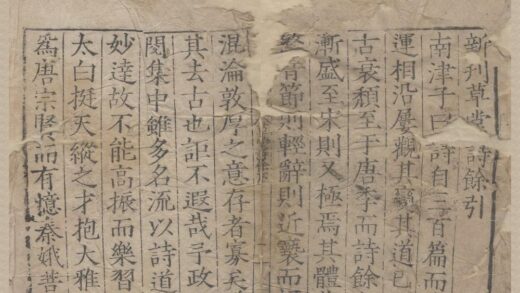 新刊草堂詩餘引
南津子曰詩自三百篇而
運相沿屢觀其變其道已
古衰頹至于唐季而詩餘
漸盛至宋則又極焉其體
音節則輕辭則近褻而
混淪敦厚之意存者寡矣
其去古也詎不遐哉予政
閱集中雖多名流以詩道
妙達故不能高振而樂習
太白挺天縱之才抱大雅
為唐宗賢而有憶秦娥菩